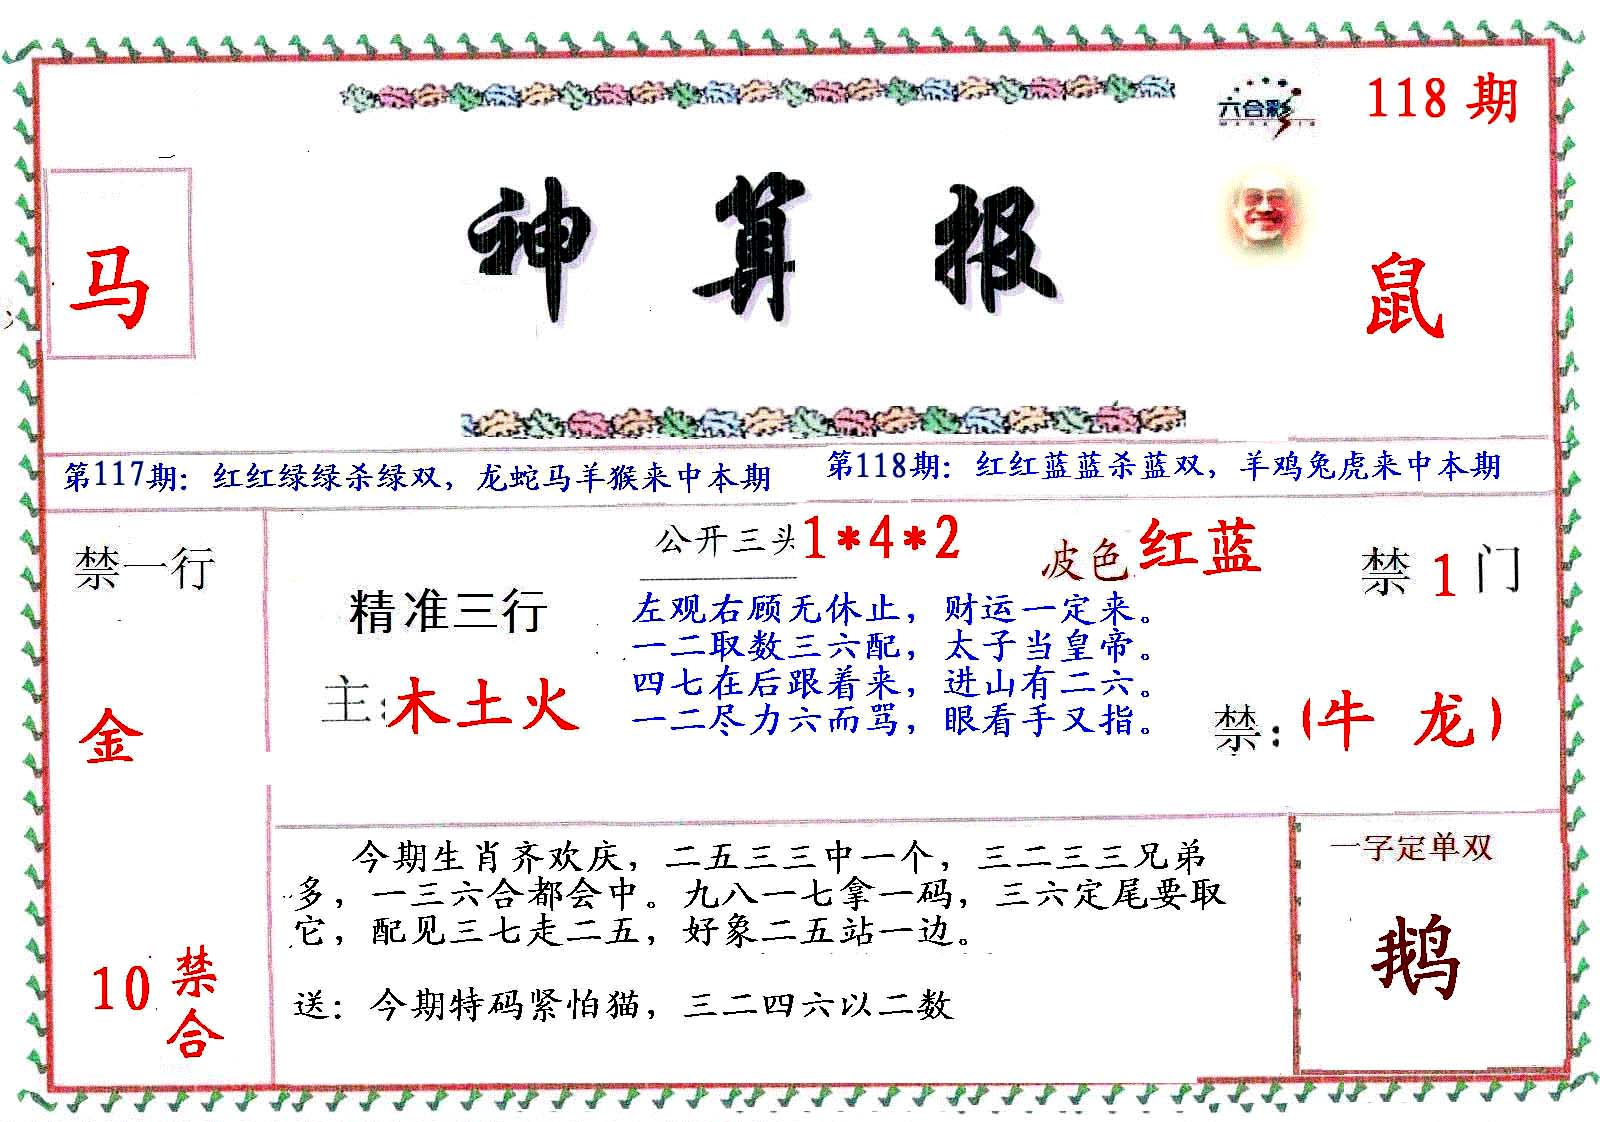 六合彩
118 期
神 算 报
马
鼠
第117期：红红绿绿杀绿双，龙蛇马羊猴来中本期
第118期：红红蓝蓝杀蓝双，羊鸡兔虎来中本期
禁一行
金
10 禁合
精准三行
主：木土火
公开三头 1*4*2
波色 红蓝
禁 1 门
左观右顾无休止，财运一定来。
一二取数三六配，太子当皇帝。
四七在后跟着来，进山有二六。
一二尽力六而骂，眼看手又指。
禁：(牛 龙)
今期生肖齐欢庆，二五三三中一个，三二三三兄弟
多，一三六合都会中。九八一七拿一码，三六定尾要取
它，配见三七走二五，好象二五站一边。
送：今期特码紧怕猫，三二四六以二数
一字定单双
鹅